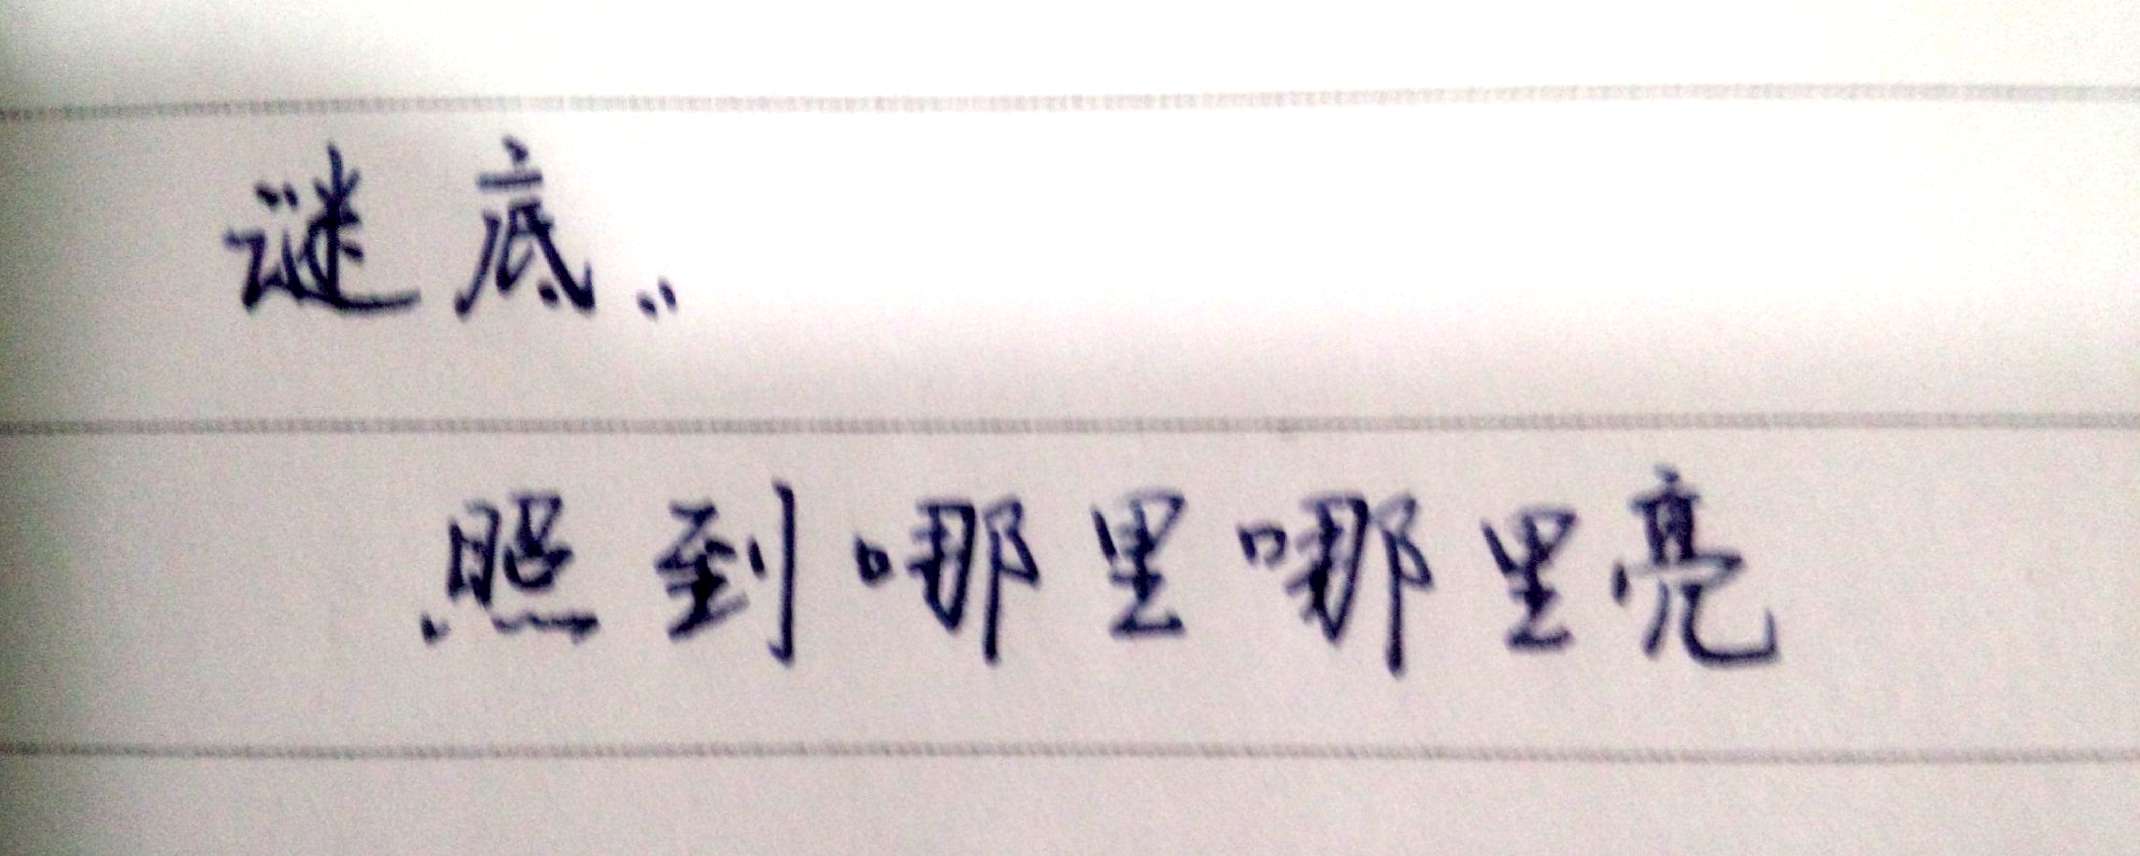 谜底：
照到哪里哪里亮